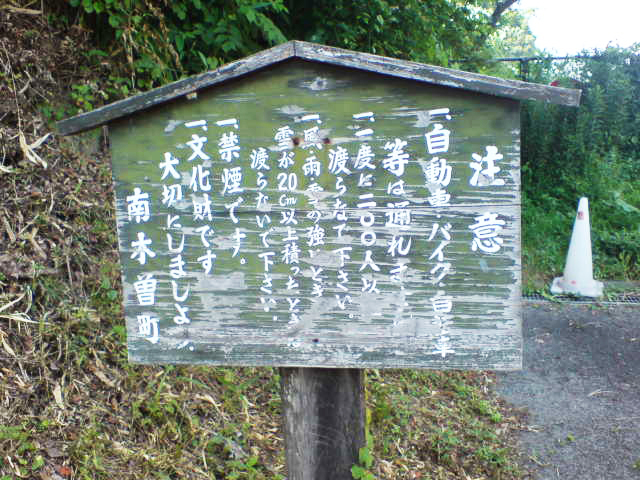 注意
一、自動車・バイク・自転車
等は通れません
一、一度に二〇〇人以上
渡らないで下さい。
一、風雨雪の強いとき
雪が20cm以上積ったときは
渡らないで下さい。
一、禁煙です。
一、文化財です
大切にしましょう。
南木曽町